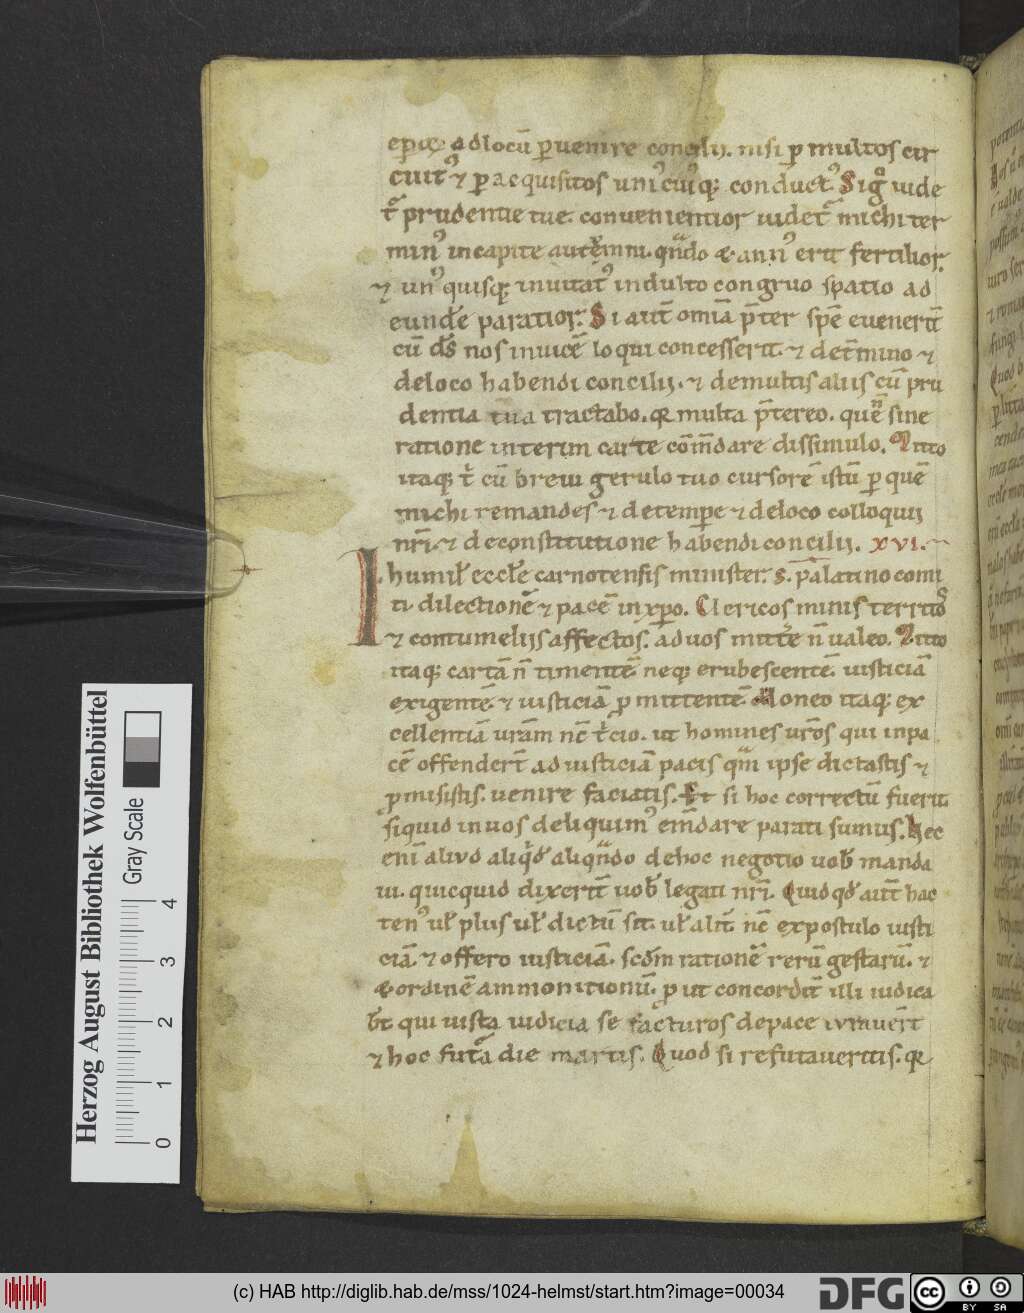 epıcę ad locū ꝑuenire concilij. nisi ꝑ multos cir
cuit᷒ ⁊ ꝑ acquisitos uni᷒cui᷒q; conduct᷒. Sig͛ uide
t᷑ prudentie tue. conuenientior uidet᷑ michi ter
min᷒ in capite autumni. qn̄do & ann᷒ erit fertilior.
⁊ un᷒quisq; inuitat᷒ indulto congruo spatio ad
eund̄e paratior. Si aut̄ omīa p̄ter spē euenerīt
cū d̄s nos inuicē loqui concesserit. ⁊ de t̄mino ⁊
de loco habendi concilij. ⁊ de multis aliis cū pru
dentia tua tractabo. q; multa p̄tereo. quē sine
ratione interim carte cōm̄dare dissimulo. Mitto
itaq; t̍ cū breui gerulo tuo cursorē istū ꝑ quē
michi remandes ⁊ de temꝑe ⁊ de loco colloquij
nr̄i. ⁊ de constitutione habendi concilij. xvi.
I. humil̄ eccl̄e carnotensis minister. s. palatino comi
ti. dilectionē ⁊ pacē in xp̄o. Clericos minis territo᷒
⁊ contumeliis affectos. ad uos mitt̄e n̄ ualeo. Mitto
itaq; cartā n̄ timentē neq; erubescentē. iusticiā
exigentē. ⁊ iusticiā ꝓmittentē. Moneo itaq; ex
cellentiā ur̄am nc̄ t̍cio. ut homines ur̄os qui in pa
cē offendert̄ ad iusticiā pacis qm̄ ipse dictastis ⁊
ꝓmisistis. uenire faciatis. Et si hoc correctū fuerit.
siquid in uos deliquim᷒ em̄dare parati sumus. Nec
enī aliud aliqd̄ aliqn̄do de hoc negotio uob̄ manda
ui. quicquid dixerīt uob̄ legati nr̄i. Quid qd̄ aut̄ hac
ten᷒ ul̄ plus ul̄ dictū sit. ul̄ alit̄. nc̄ expostulo iusti
ciā. ⁊ offero iusticiā. scd̄m rationē rerū gestarū. ⁊
& ordinē ammonitionū. ꝓut concordit̄ illi iudica
bt̄ qui iusta iudicia se facturos de pace iurauer̄t
⁊ hoc fut᷑a die martis. Quod si refutaueritis. q;
Herzog August Bibliothek Wolfenbüttel
Gray Scale
0 1 2 3 4
(c) HAB http://diglib.hab.de/mss/1024-helmst/start.htm?image=00034
DFG
cc BY SA